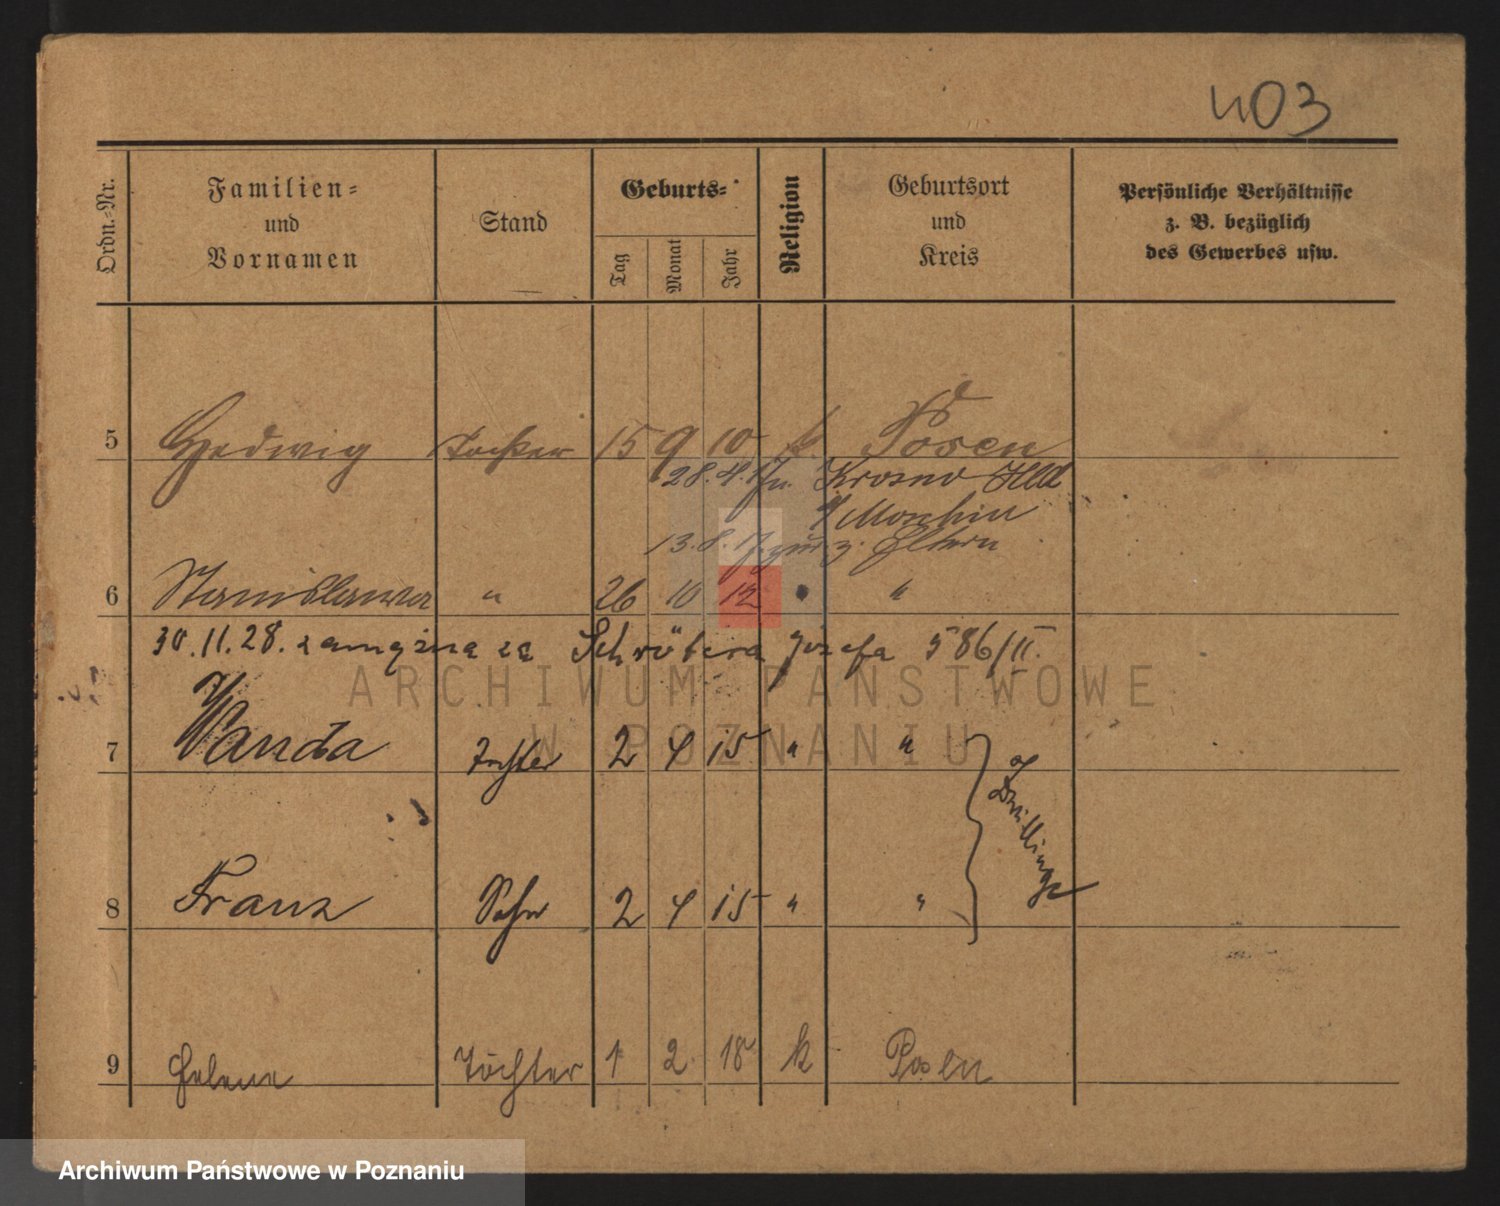 403
Ordn.-Nr.
Familien-
und
Vornamen
Stand
Geburts-
Tag
Monat
Jahr
Religion
Geburtsort
und
Kreis
Persönliche Verhältnisse
z. B. bezüglich
des Gewerbes usw.
5 Hedwig Tochter 15 9 10 k Posen
28.4.17 n. Krosno Hld
b/ Moschin
13.8.17 zur. z. Eltern
6 Stanislawa " 26 10 12 " "
30.11.28. zamężna za Schrötera Józefa 586/II.
7 Wanda Tochter 2 4 15 " "
Drillinge
8 Franz Sohn 2 4 15 " "
9 Helene Töchter 1 2 18 k Posen
ARCHIWUM PAŃSTWOWE
W POZNANIU
Archiwum Państwowe w Poznaniu